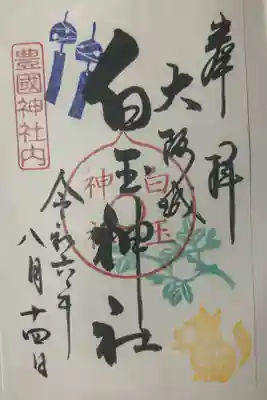 奉拝
大阪城
白玉神社
白玉
神社
豊國神社内
令和六年
八月十四日